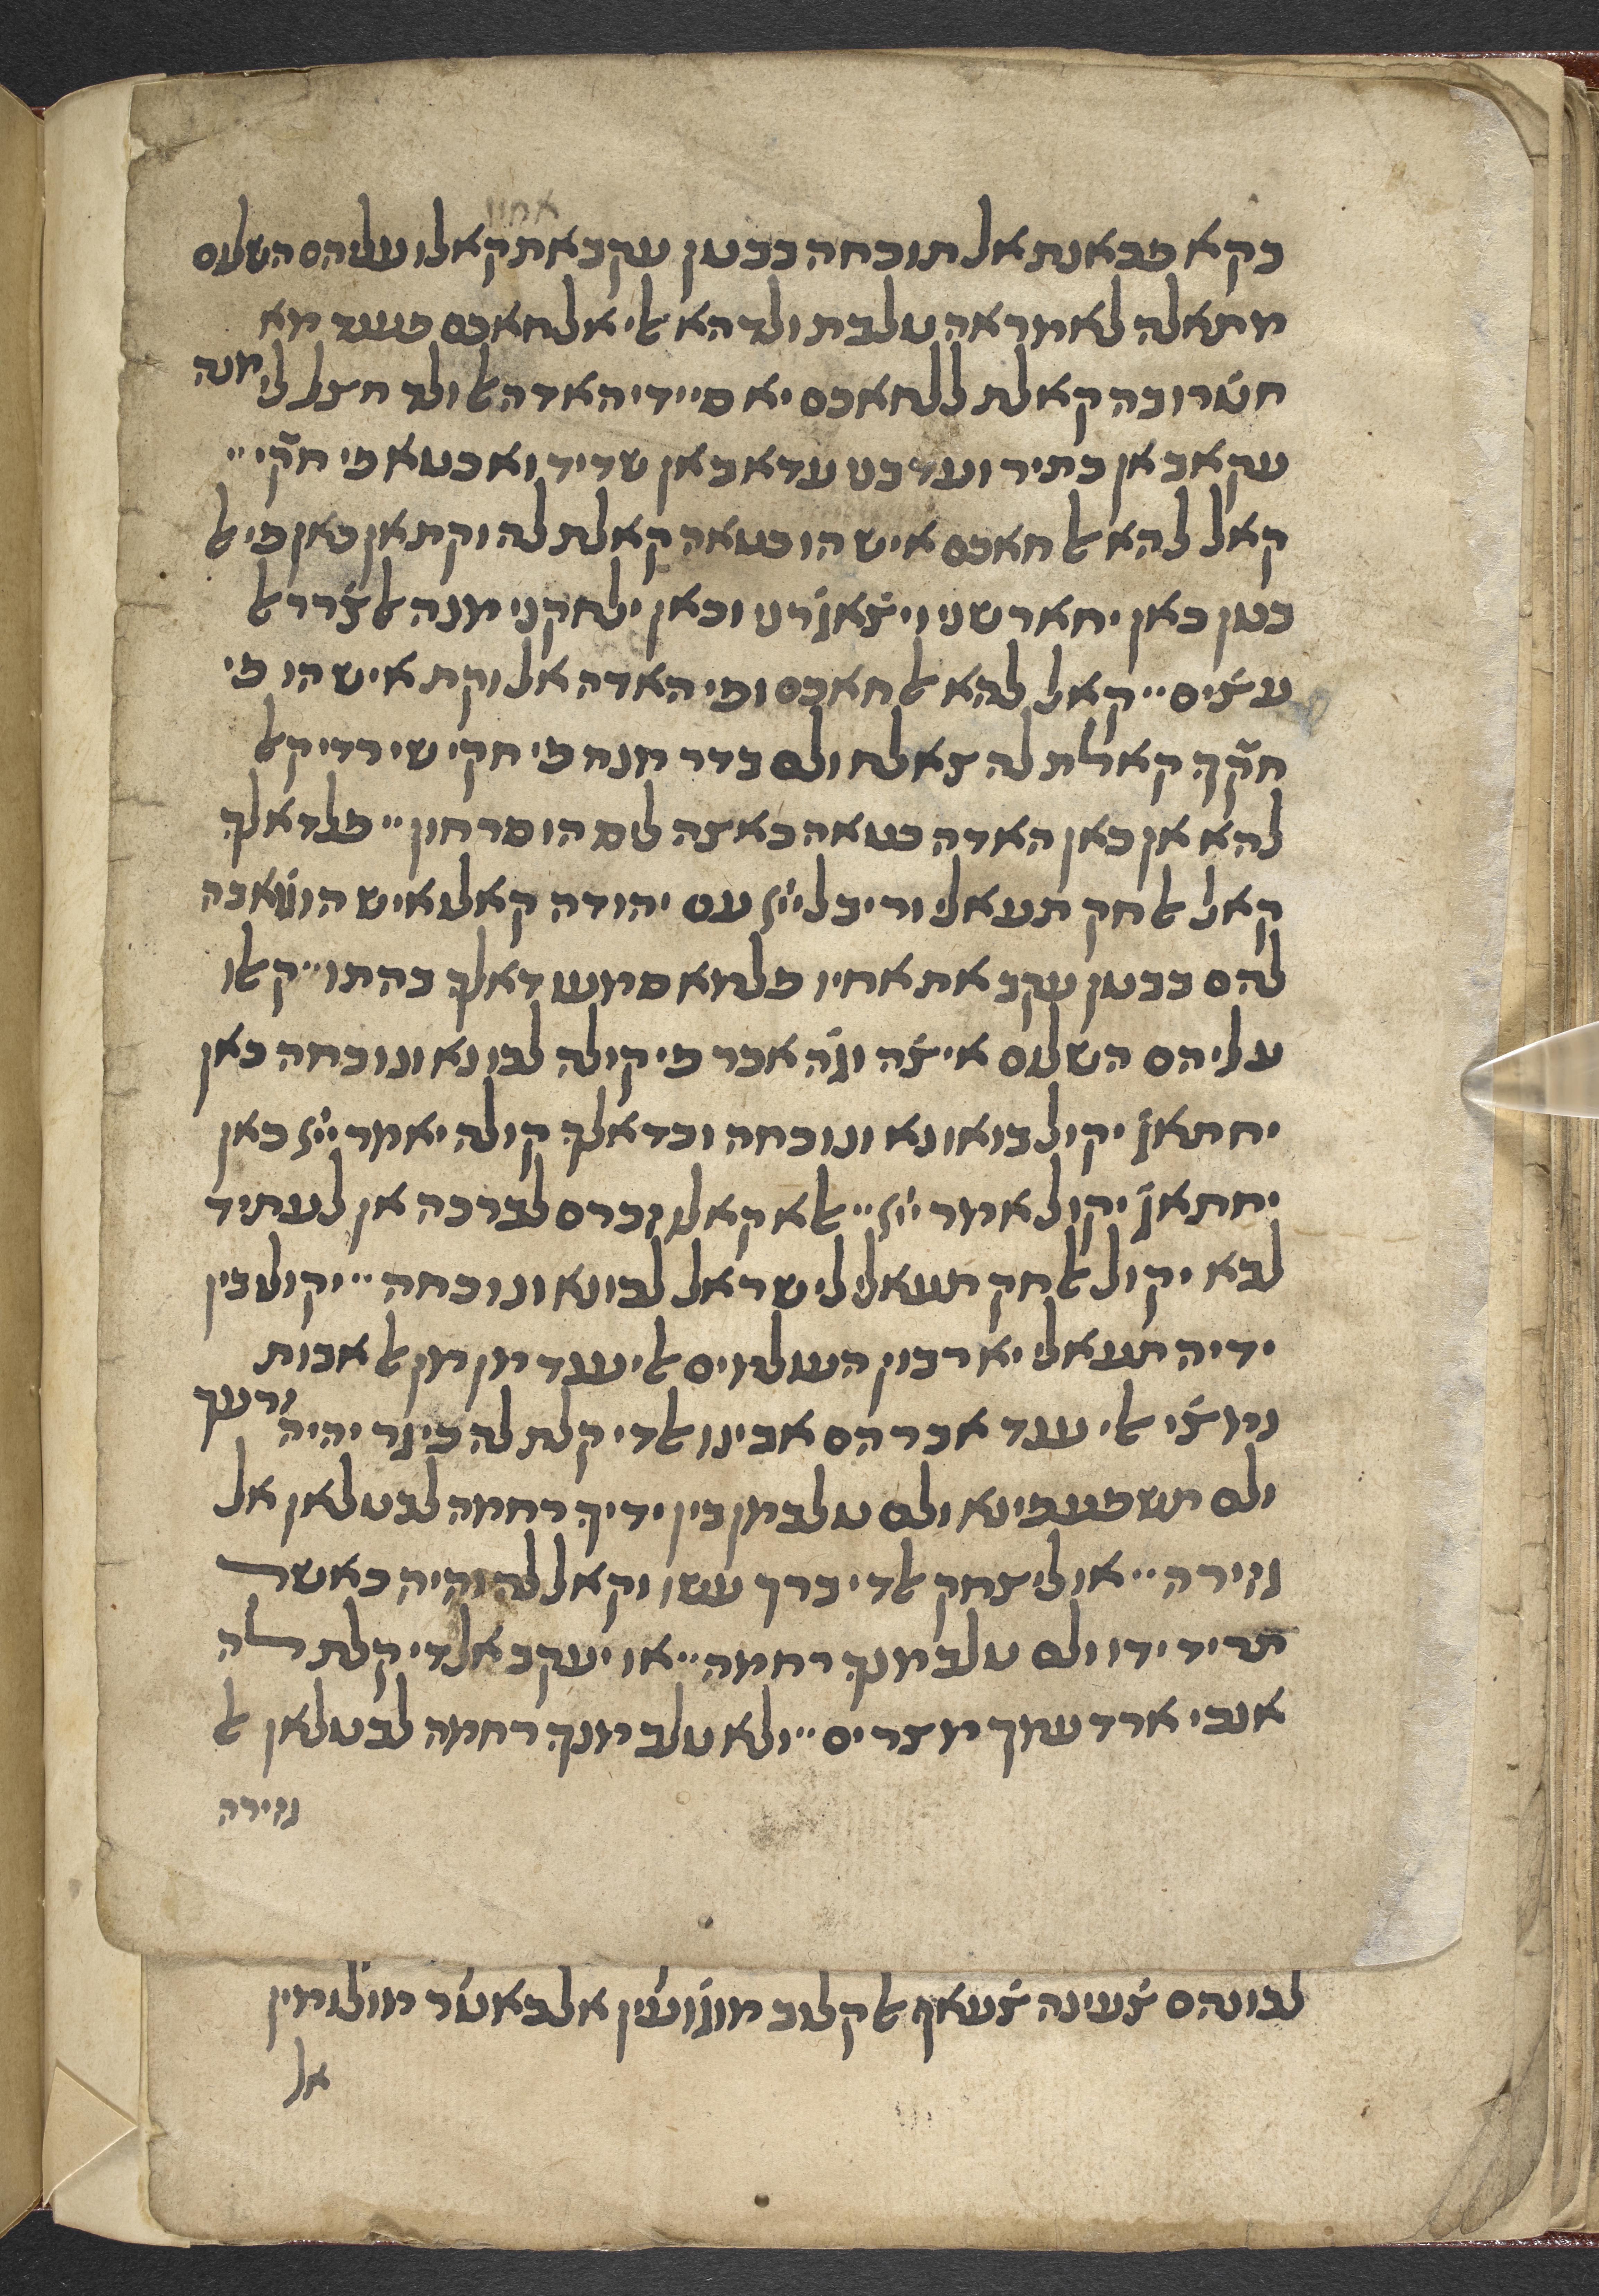 אחיו
בקא פבאנת אל תוכחה בבטן עקב את קאלו עליהם השלום
מתאלה לאמראה טלבת ולדהא לי אלחאכם פענד מא
חצ̇רו בה קאלת ללחאכם יא סיידי האדה אל ולד חצל לי מנה
עקאב אן כתיר ועדבט עדאב אן שדיד ואכטא פי חקי ״
קאל להא אל חאכם איש הו כטאה קאלת לה וקת אן כאן פי אל
בטן כאן יחארשני ויצ̇אררני וכאן ילחקני מנה אל צ̇רר אל
עצ̇ים ״ קאל להא אל חאכם ופי האדה אל וקת איש הו פי
חקך קאלת לה צאלח ולם בדר מנה פי חקי שי רדי קאל
להא אן כאן האדה כטאה כאצה ליס הו סרחון ״ פלדאלך
קאל אל חק תעאלי וריב ליי׳ עם יהודה קאלו איש הו גואבה
להם בבטן עקב את אחיו פלמא סמעו דאלך בהתו ״ קאלו
עליהם השלום איצ̇ה וגה אכר פי קולה לכו נא ונוכחה כאן
יחתאג יקול בואו נא ונוכחה וכדאלך קולה יאמר יי׳ כאן
יחתאג יקול אמר יי׳ ״ אלא קאלו זכרם לברכה אן לעתיד
לבא יקול אל חק תעאלי לישראל לכו נא ונוכחה ״ יקולו בין
ידיה תעאלי יא רבון העולמים אלי ענד מן מן אל אבות
נמצ̇י אלי ענד אברהם אבינו אלדי קלת לה כי גר יהיה זרעך
ולם תשפע פינא ולם טלב מן בין ידיך רחמה לבטלאן אל
גזירה ״ או ליצחק אלדי ברך עשו וקאל לה והיה כאשר
תריד ידו ולם טלב מנך רחמה ״ או יעקב אלדי קלת לה
אנכי ארד עמך מצרים ״ ולא טלב מנך רחמה לבטלאן אל
גזירה
לכונהם צ̇עינה צ̇עאף אל קלוב מוגועין אלבאטר מולומין
אל